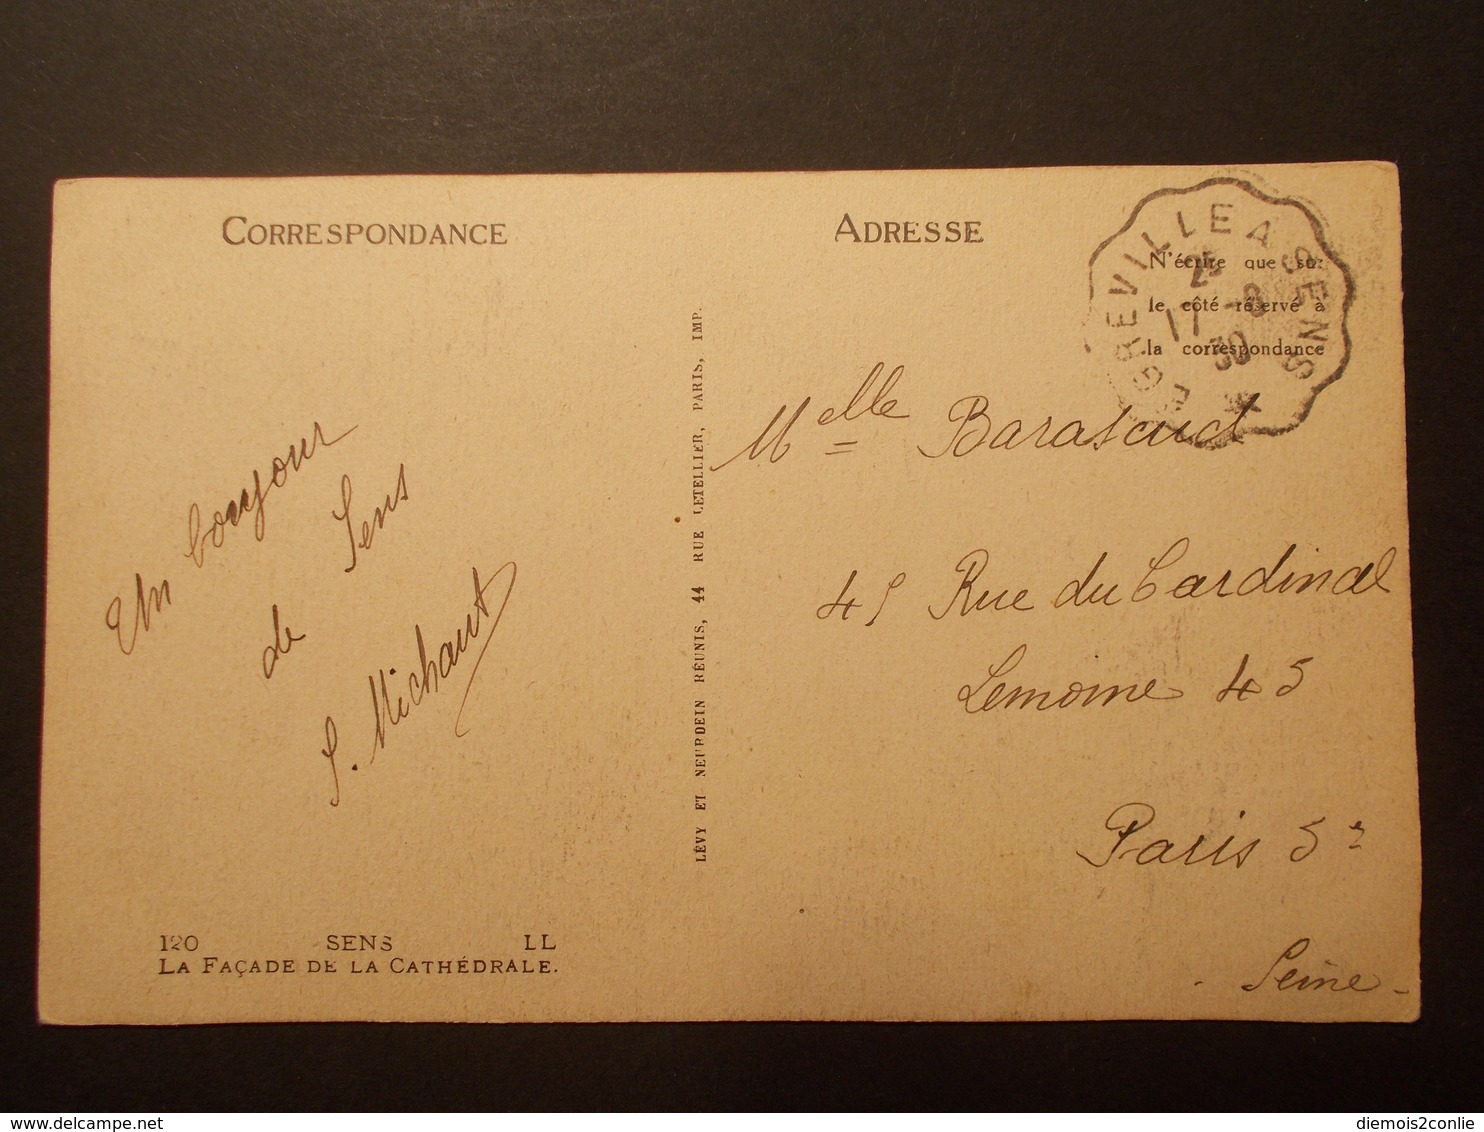 CORRESPONDANCE
ADRESSE
N'écrire que sur
le côté réservé à
la correspondance
EGREVILLE A SENS
25
17 -8
30
Un bonjour
de Sens
S. Michaut
LÉVY ET NEURDEIN RÉUNIS, 44 RUE LETELLIER, PARIS, IMP.
Melle
45 Rue du Cardinal
Lemoine 45
Paris 5e
- Seine -
120 SENS LL
LA FAÇADE DE LA CATHÉDRALE.
delcampe.net
diemois2conlie